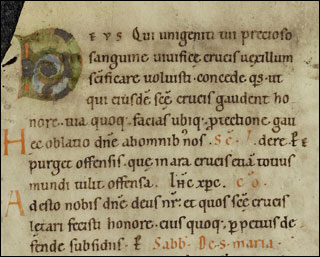 DEVS Qui unigeniti tui precioso
sanguine uiuifice crucis uexillum
scīficare uoluisti. concede qs̄ ut
qui eiusdē scē crucis gaudent ho
nore. tua quoq; facias ubiq; ꝓtectione. gau
Hec oblatio dn̄e abomnib; nos Sec̄. dere. P̄
purget offensis. que in ara crucis etiā totius
mundi tulit offensa. Ih̄c xp̄c. Co.
Adesto nobis dn̄e deus nr̄. et quos scē crucis
letari fecisti honore. eius quoq; ꝑpetuis de
fende subsidiis. P̄ Sabb. De.s.maria.